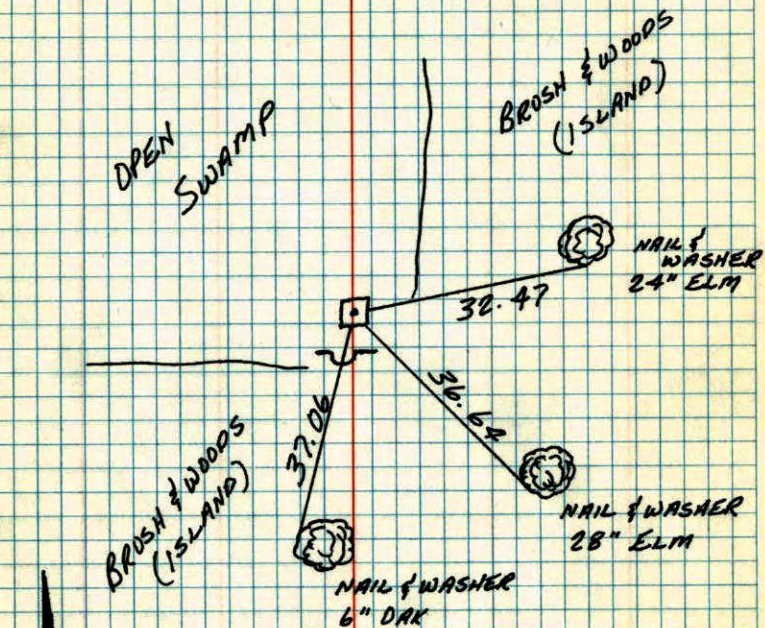 OPEN
SWAMP
BRUSH & WOODS
(ISLAND)
NAIL &
WASHER
24" ELM
32.47
36.64
37.06
BRUSH & WOODS
(ISLAND)
NAIL & WASHER
28" ELM
NAIL & WASHER
6" OAK